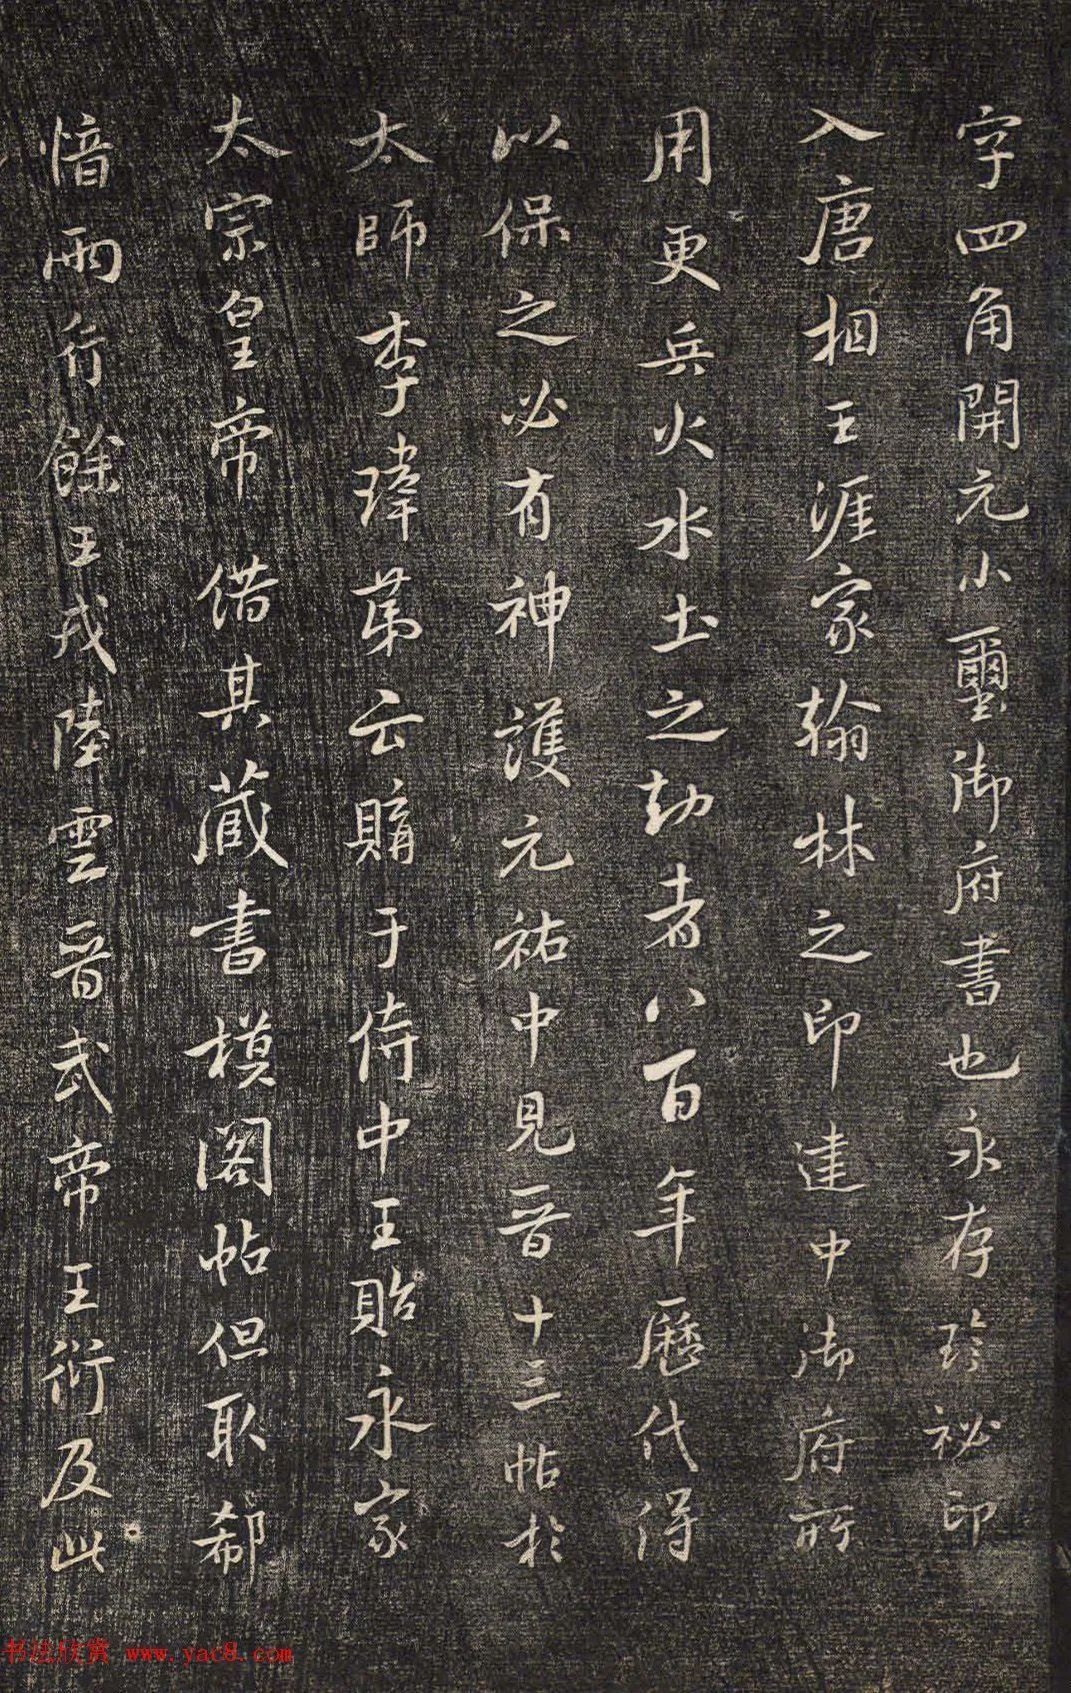 字四角開元小璽御府書也永存珍祕印
入唐相王涯家翰林之印建中御府所
用更兵火水土之劫者八百年歷代得
以保之必有神護元祐中見晉十三帖於
太師李瑋第云購于侍中王貽永家
太宗皇帝借其藏書模閣帖但取郗
愔兩行餘王戎陸雲晉武帝王衍及此
书法欣赏 www.yac8.com